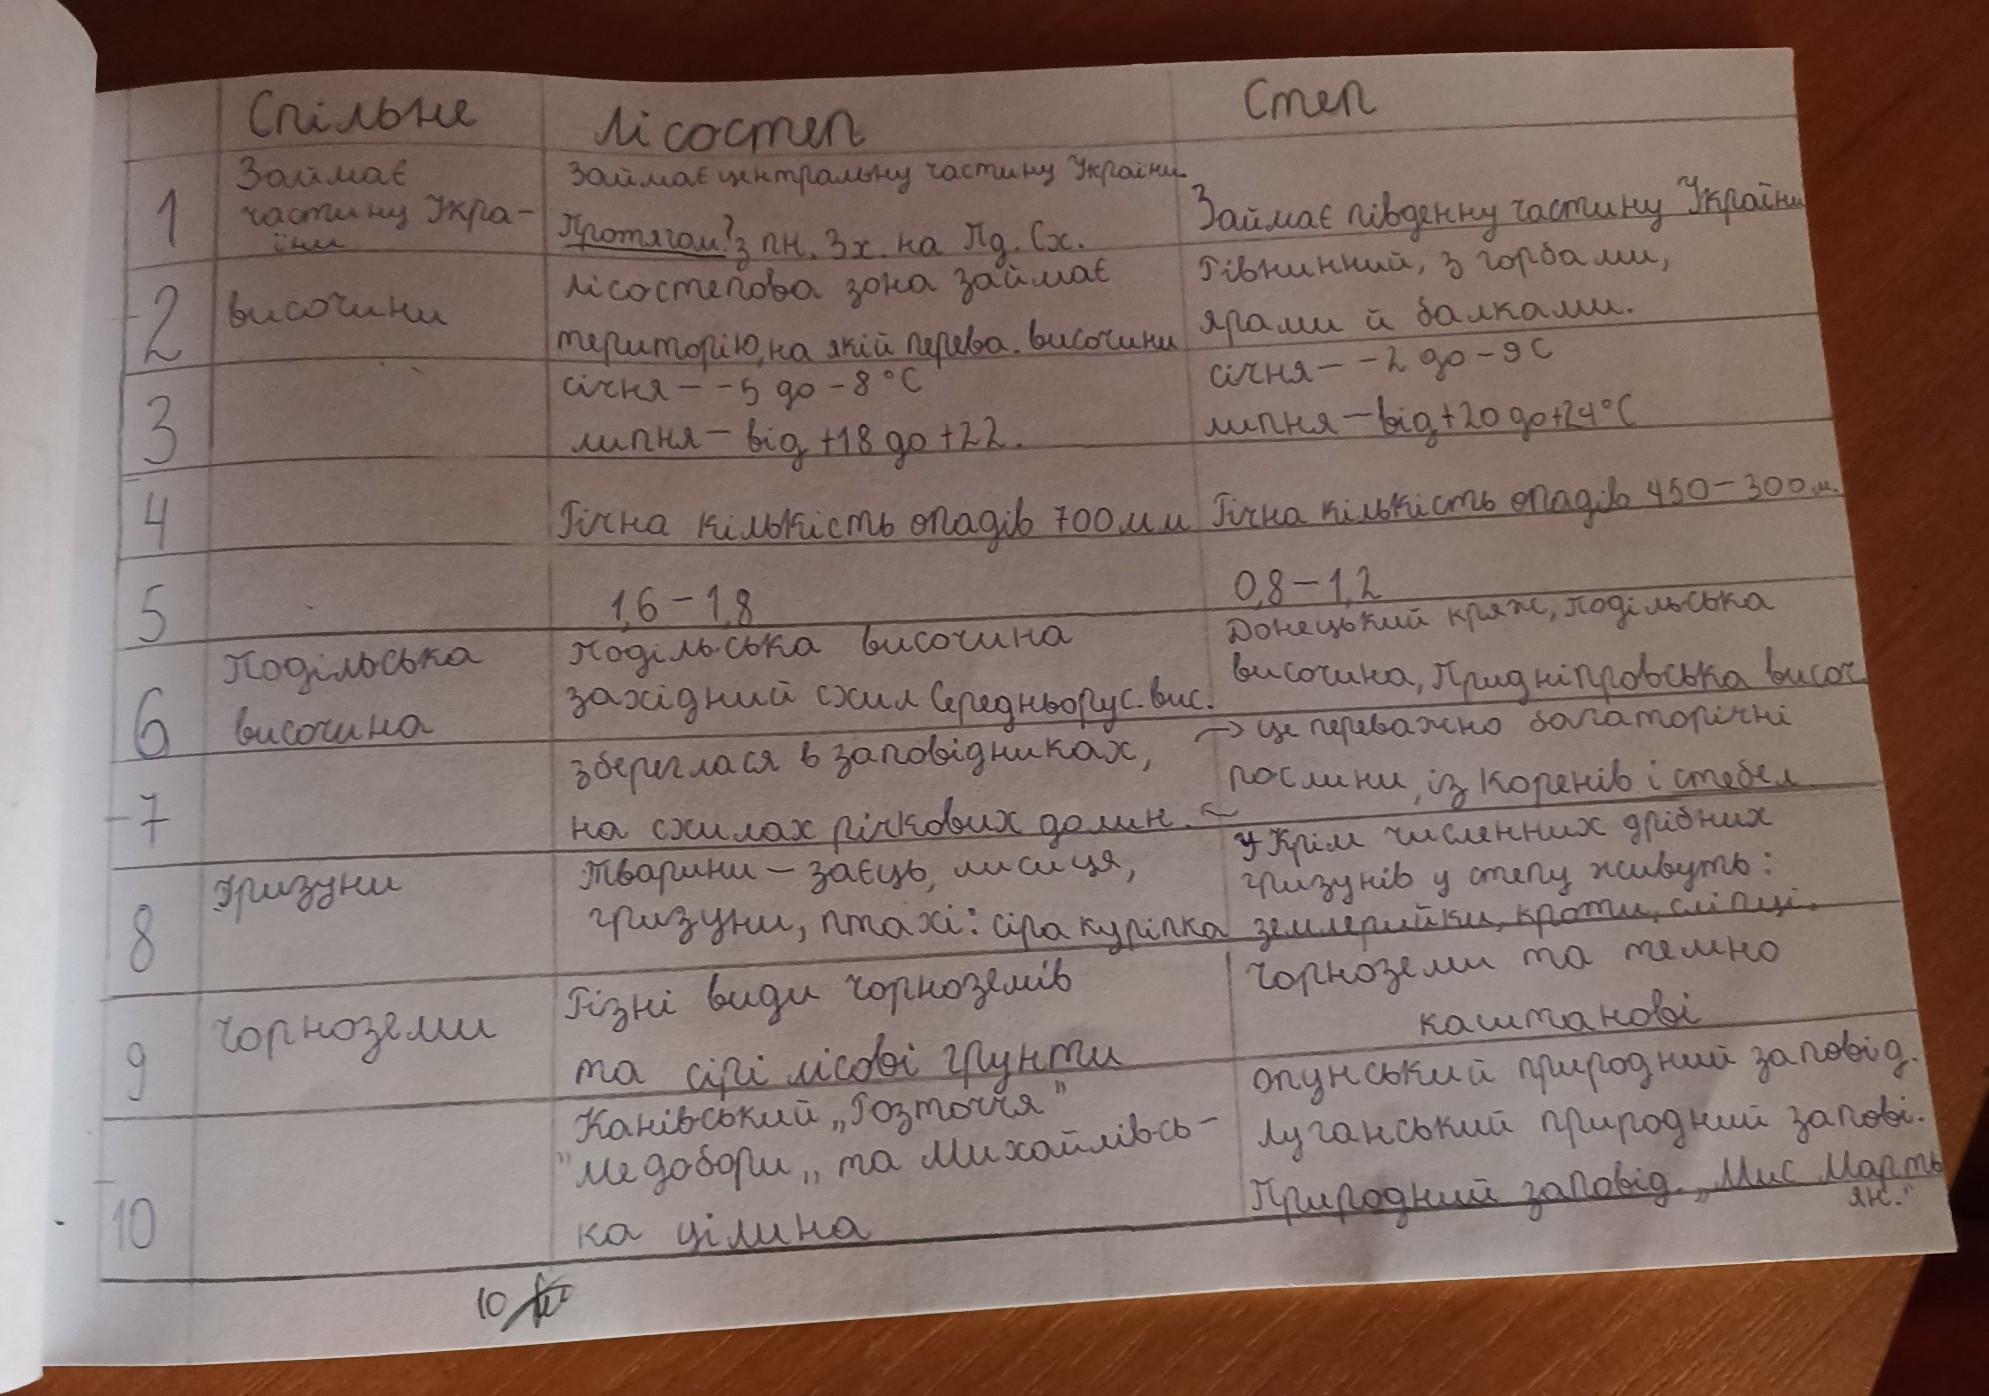 Спільне
Лісостеп
Степ
1
Займає
частину Укра-
їни
Займає центральну частину України.
Протягом? з пн. Зх. на Пд. Сх.
Займає південну частину України
2
височини
лісостепова зона займає
територію, на якій перева. височини
Рівнинний, з горбами,
ярами й балками.
3
січня – -5 до -8°С
липня – від +18 до +22.
січня – -2 до -9С
липня – від +20 до +24°С
4
Річна кількість опадів 700мм
Річна кількість опадів 450-300м.
5
1,6-1,8
0,8-1,2
6
Подільська
височина
Подільська височина
західний схил Середньорус. вис.
Донецький кряж, Подільська
височина, Придніпровська височ.
7
збереглася в заповідниках,
на схилах річкових долин.
→ це переважно багаторічні
рослини, із коренів і стебел
8
Гризуни
Тварини – заєць, лисиця,
гризуни, птахі: сіра куріпка
Крім численних дрібних
гризунів у степу живуть:
землерийки, кроти, сліпці.
9
Чорноземи
Різні види чорноземів
та сірі лісові грунти
Чорноземи та темно
каштанові
10
Канівський „Розточчя"
"Медобори„ та Михайлівсь-
ка цілина
опунський природний заповід.
Луганський природний запові.
Природний заповід. „Мис Марть
ян."
10